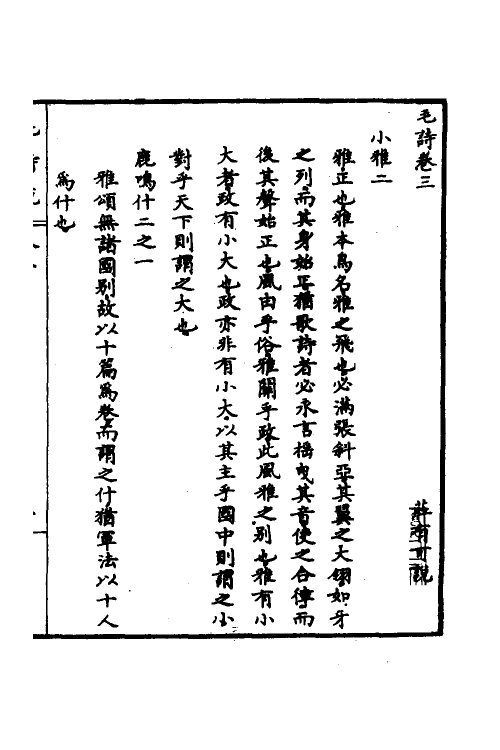 毛詩卷三
莊有可說
小雅二
雅正也雅本鳥名雅之飛也必滿張斜亞其翼之大翎如牙
之列而其身始正猶歌詩者必永言搖曳其音使之合律而
後其聲始正也風由乎俗雅關乎政此風雅之別也雅有小
大者政有小大也政亦非有小大以其主乎國中則謂之小
對乎天下則謂之大也
鹿鳴什二之一
雅頌無諸國別故以十篇爲卷而謂之什猶軍法以十人
爲什也